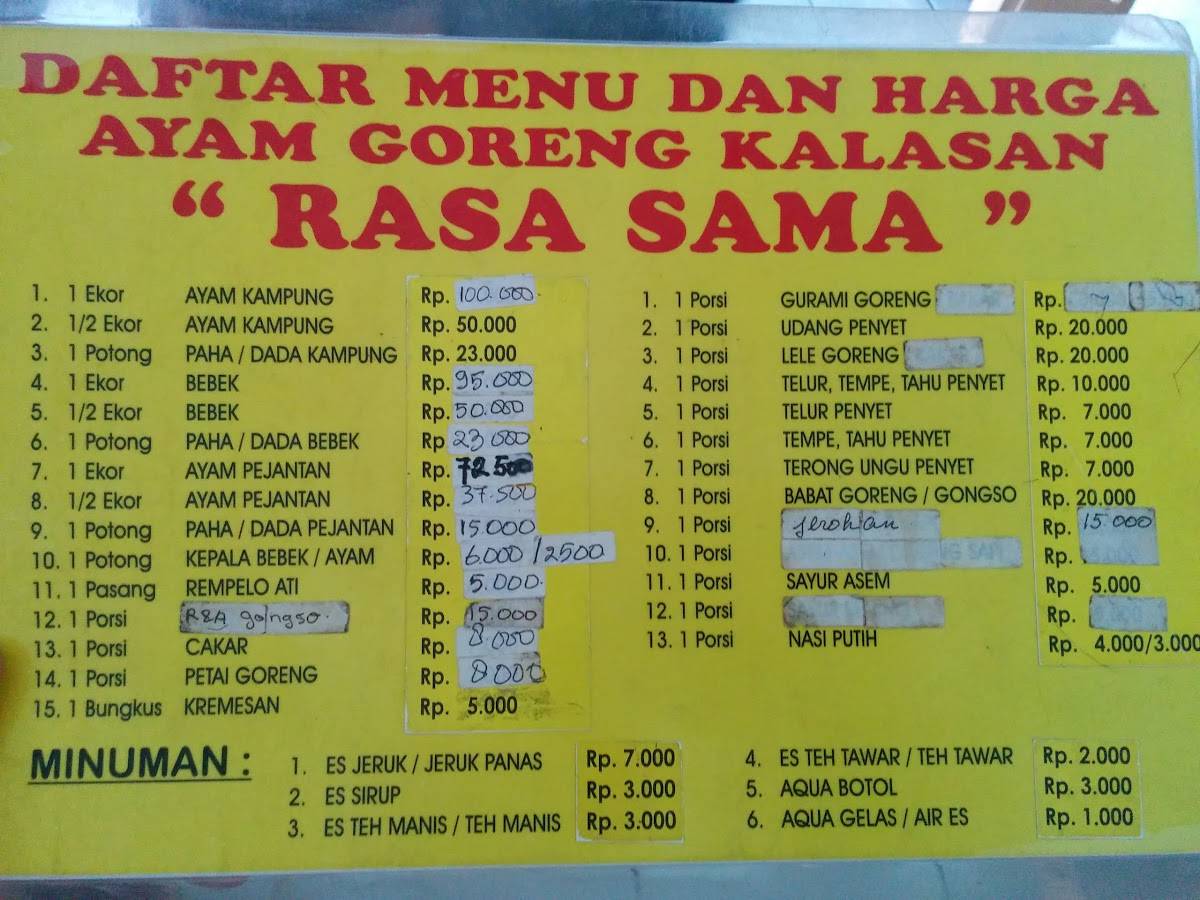 DAFTAR MENU DAN HARGA
AYAM GORENG KALASAN
“ RASA SAMA ”
1. 1 Ekor AYAM KAMPUNG Rp. 100.000
2. 1/2 Ekor AYAM KAMPUNG Rp. 50.000
3. 1 Potong PAHA / DADA KAMPUNG Rp. 23.000
4. 1 Ekor BEBEK Rp. 95.000
5. 1/2 Ekor BEBEK Rp. 50.000
6. 1 Potong PAHA / DADA BEBEK Rp 23000
7. 1 Ekor AYAM PEJANTAN Rp. 72500
8. 1/2 Ekor AYAM PEJANTAN Rp. 37.500
9. 1 Potong PAHA / DADA PEJANTAN Rp. 15.000
10. 1 Potong KEPALA BEBEK / AYAM Rp. 6.000 / 2500
11. 1 Pasang REMPELO ATI Rp. 5.000.
12. 1 Porsi R&A gongso. Rp. 15.000
13. 1 Porsi CAKAR Rp. 8.000
14. 1 Porsi PETAI GORENG Rp. 8000
15. 1 Bungkus KREMESAN Rp. 5.000
1. 1 Porsi GURAMI GORENG Rp.
2. 1 Porsi UDANG PENYET Rp. 20.000
3. 1 Porsi LELE GORENG Rp. 20.000
4. 1 Porsi TELUR, TEMPE, TAHU PENYET Rp. 10.000
5. 1 Porsi TELUR PENYET Rp. 7.000
6. 1 Porsi TEMPE, TAHU PENYET Rp. 7.000
7. 1 Porsi TERONG UNGU PENYET Rp. 7.000
8. 1 Porsi BABAT GORENG / GONGSO Rp. 20.000
9. 1 Porsi jerohan Rp. 15.000
10. 1 Porsi Rp.
11. 1 Porsi SAYUR ASEM Rp. 5.000
12. 1 Porsi Rp.
13. 1 Porsi NASI PUTIH Rp. 4.000/3.000
MINUMAN :
1. ES JERUK / JERUK PANAS Rp. 7.000
2. ES SIRUP Rp. 3.000
3. ES TEH MANIS / TEH MANIS Rp. 3.000
4. ES TEH TAWAR / TEH TAWAR Rp. 2.000
5. AQUA BOTOL Rp. 3.000
6. AQUA GELAS / AIR ES Rp. 1.000